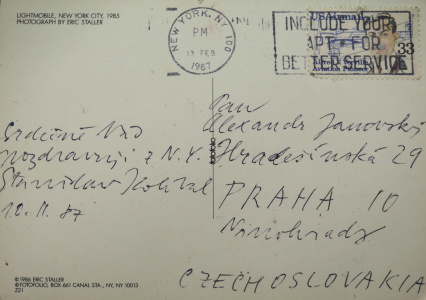 LIGHTMOBILE, NEW YORK CITY, 1985
PHOTOGRAPH BY ERIC STALLER
NEW YORK, N.Y. 100
PM
13 FEB
1987
INCLUDE YOUR
APT FOR
BETTER SERVICE
USAirmail
33
Alfred V. Verville
Aviation Pioneer
Srdečně Vás
pozdravuji z N.Y.
Stanislav Kolíbal
10. II. 87
Pan
Alexandr Janovský
Hradešínská 29
PRAHA 10
Vinohrady
CZECHOSLOVAKIA
fotofolio
© 1986 ERIC STALLER
©FOTOFOLIO, BOX 661 CANAL STA., NY, NY 10013
Z21